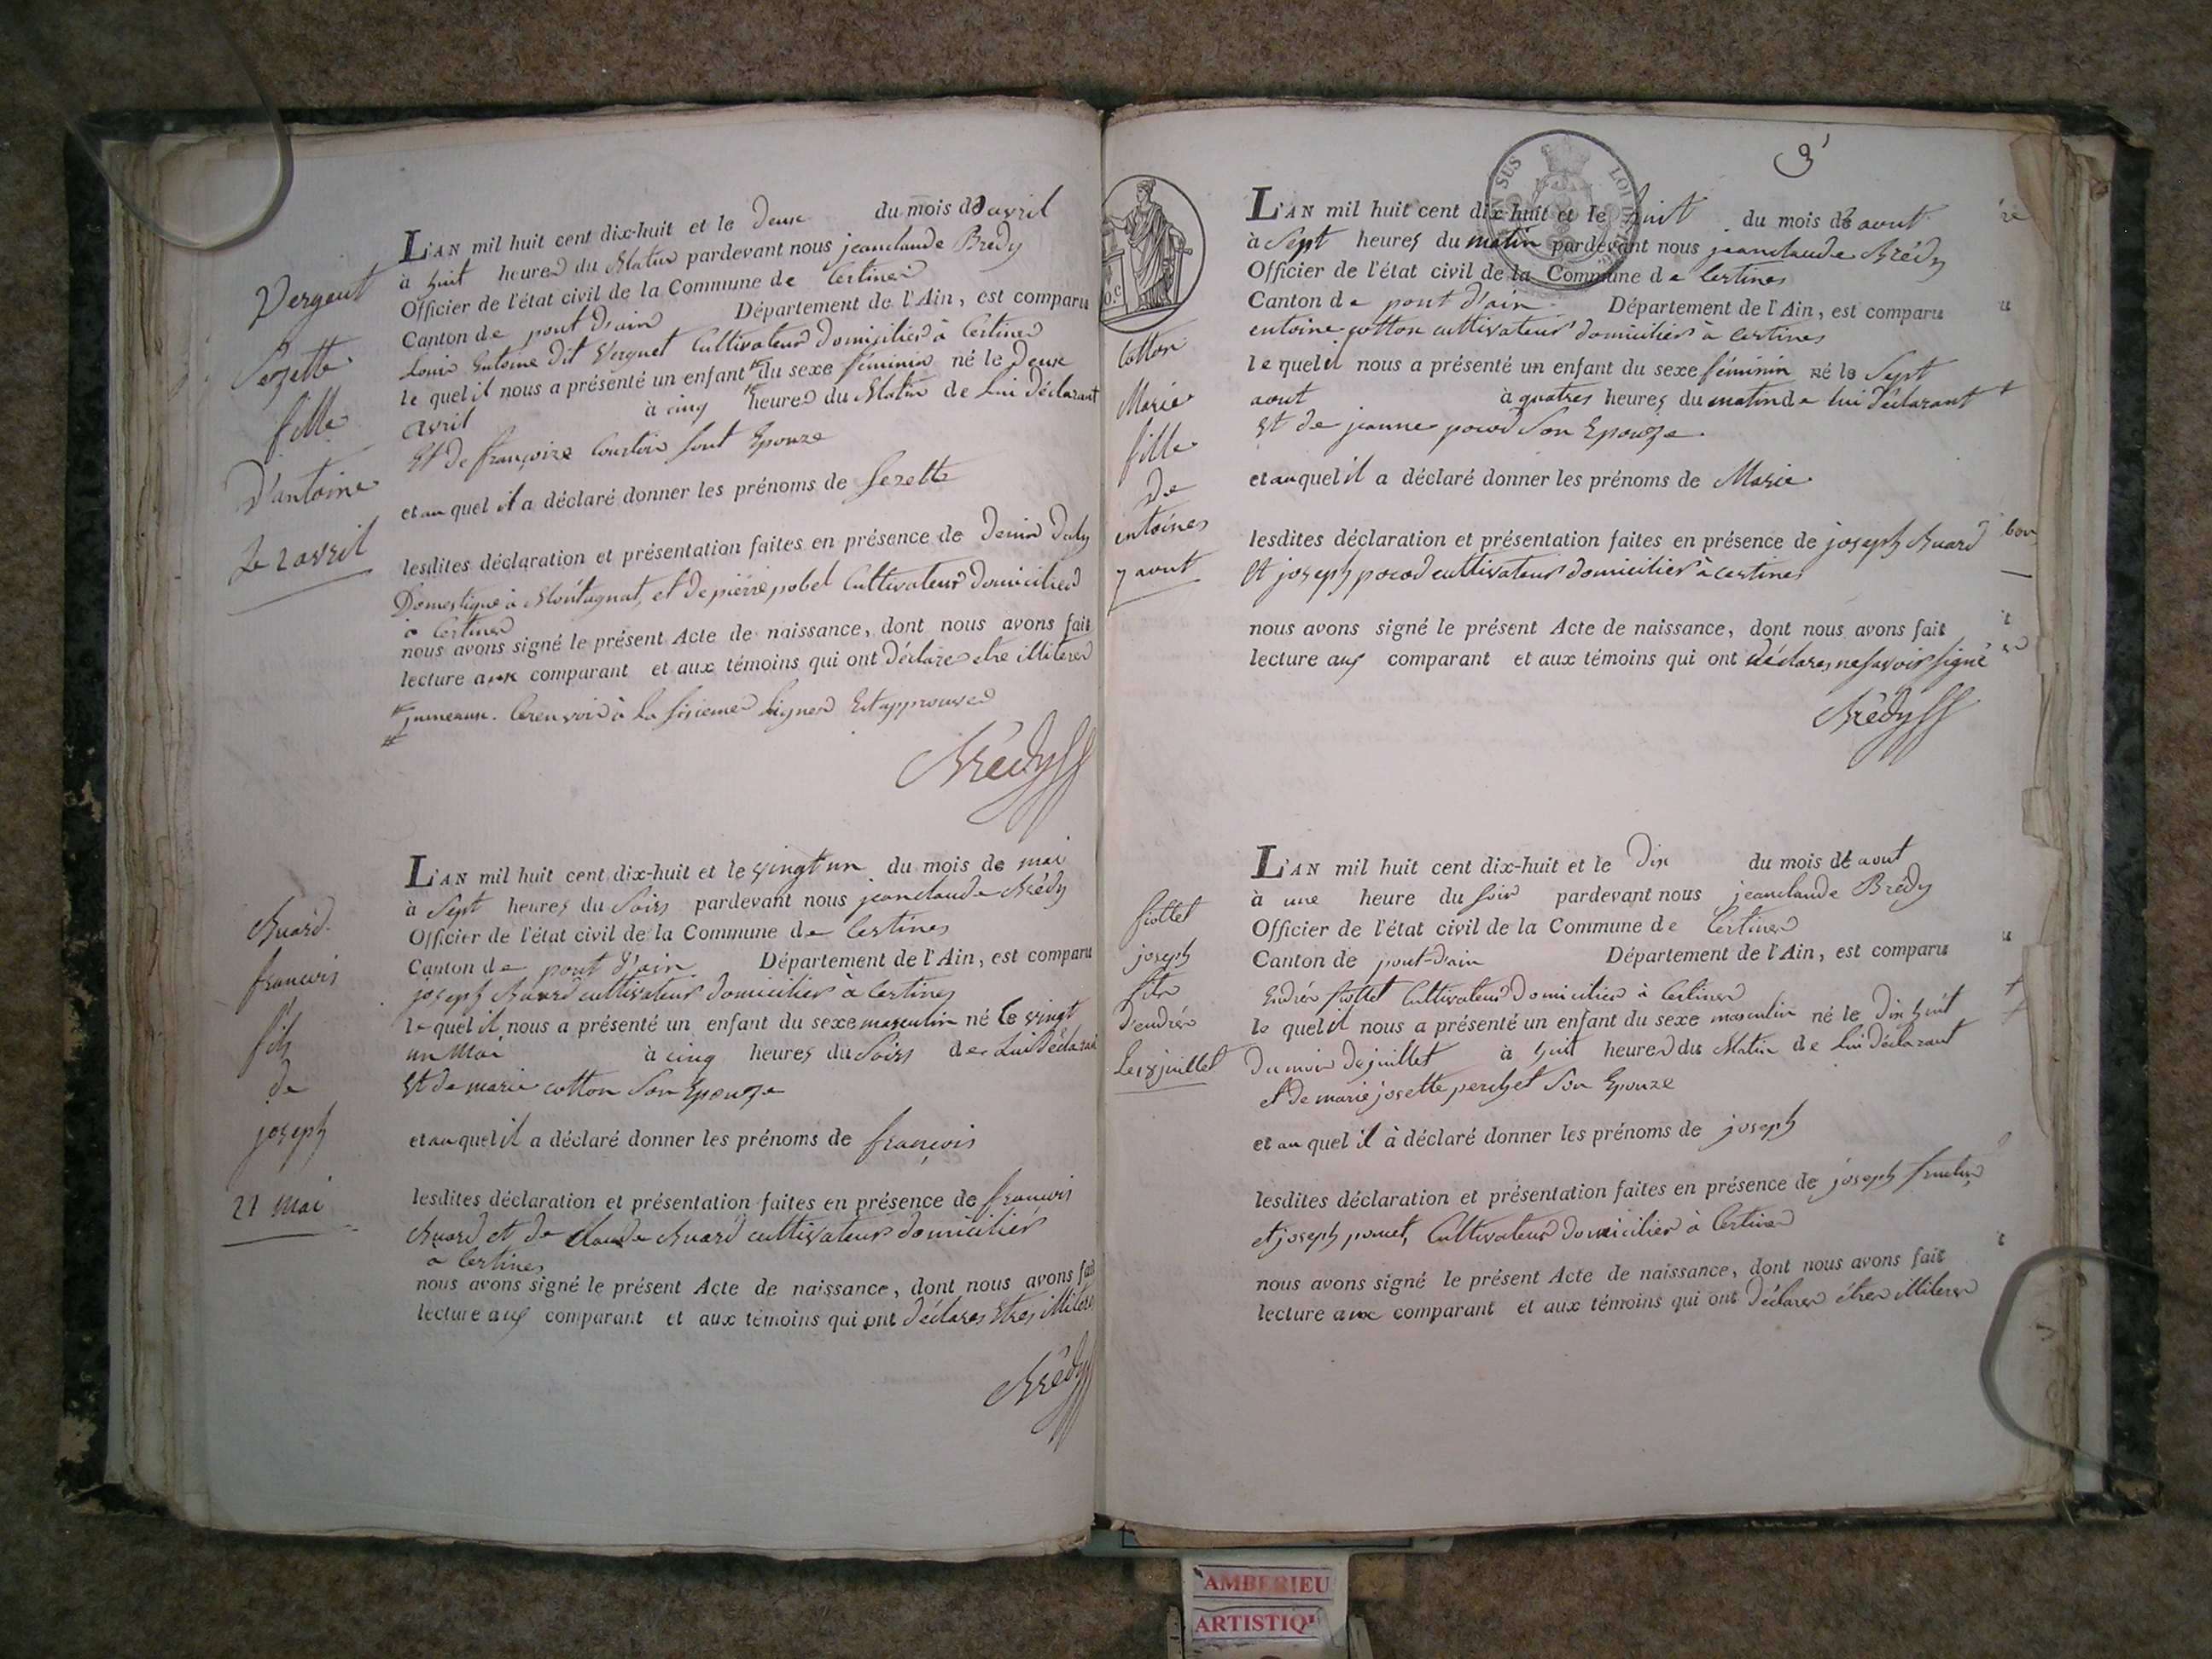 L'AN mil huit cent dix-huit et le Deux du mois de avril
à huit heures du Matin pardevant nous jeanclaude Bredy
Officier de l'état civil de la Commune de Certines
Canton de pont D'ain Département de l'Ain, est comparu
Louis Entoine Dit Verguet Cultivateur Domicilier à Certines
le quel il nous a présenté un enfant du sexe féminin né le Deux
avril à cinq heures du Matin de Lui Déclarant
Et De françoise Courtois sont Epouze
et au quel il a déclaré donner les prénoms de Sezette
lesdites déclaration et présentation faites en présence de Denis
Domestique à Montagnat, et De pierre pobel Cultivateur Domicilied
à Certines
nous avons signé le présent Acte de naissance, dont nous avons fait
lecture aux comparant et aux témoins qui ont Déclare etre illiteres
jumeaux. Cerenvoir à La sixieme Ligner Est approuver
Brédy
Vergeut
Sezette
fille
D'antoine
Le 2 avril
L'AN mil huit cent dix-huit et le vingt un du mois de mai
à Sept heures du Soirs pardevant nous jeanclaude Brédy
Officier de l'état civil de la Commune de Certines
Canton de pont d'ain Département de l'Ain, est comparu
joseph Buard cultivateur domicilier à Certines
le quel il nous a présenté un enfant du sexe masculin né le vingt
un Mai à cinq heures du Soirs de Lui Déclarant
Et de marie cotton Son Epouze
et au quel il a déclaré donner les prénoms de françois
lesdites déclaration et présentation faites en présence de françois
Buard et de Claude Buard cultivateur domicilier
a Certines
nous avons signé le présent Acte de naissance, dont nous avons fait
lecture aux comparant et aux témoins qui ont déclares Etres illiteres
Brédy
Buard
francois
fils
de
joseph
21 mai
3
SUS
LOI
L'AN mil huit cent dix-huit et le huit du mois de aout
à Sept heures du matin pardevant nous jeanclaude Brédy
Officier de l'état civil de la Commune de Certines
Canton de pont d'ain Département de l'Ain, est comparu
entoine cotton cultivateur domicilier à certines
le quel il nous a présenté un enfant du sexe féminin né le Sept
aout à quatres heures du matin de lui déclarant
Et de jeanne pocod Son Epouze
et au quel il a déclaré donner les prénoms de Marie
lesdites déclaration et présentation faites en présence de joseph Buard
Et joseph pocod cultivateur domicilier à certines
nous avons signé le présent Acte de naissance, dont nous avons fait
lecture aux comparant et aux témoins qui ont déclares ne savoir signé
Brédy
Cotton
Marie
fille
De
entoines
7 aout
L'AN mil huit cent dix-huit et le Dix du mois de aout
à une heure du soir pardevant nous jeanclaude Brédy
Officier de l'état civil de la Commune de Certines
Canton de pont-d'ain Département de l'Ain, est comparu
Endrés Cultivateur Domicilier à Certines
le quel il nous a présenté un enfant du sexe masculin né le Dix huit
Du mois De juillet à huit heures du Matin de Lui Déclarant
et De marie josette perchet Son Epouze
et au quel il à déclaré donner les prénoms de joseph
lesdites déclaration et présentation faites en présence de joseph
et joseph Cultivateur Domicilier à Certines
nous avons signé le présent Acte de naissance, dont nous avons fait
lecture aux comparant et aux témoins qui ont Déclarer étres illiteres
joseph
fils
D'endrés
Le 18 juillet
AMBERIEU
ARTISTIQ